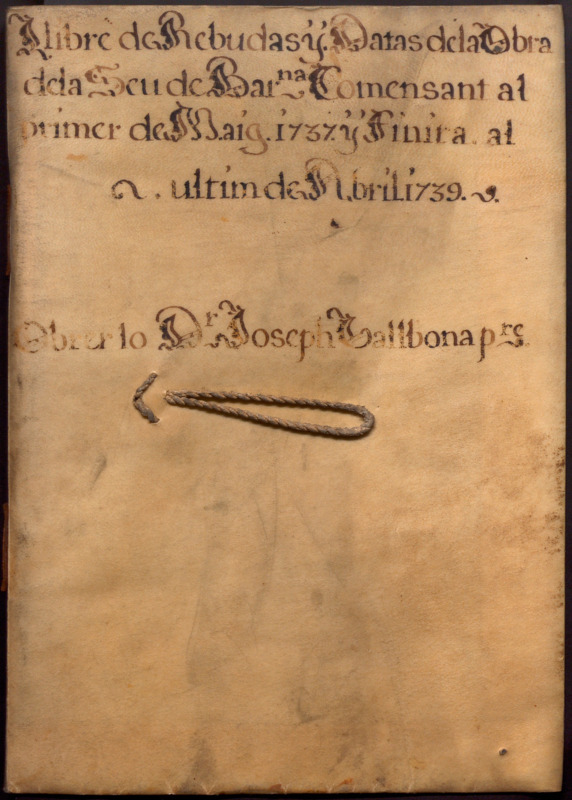 Llibre de Rebudas, ÿ Datas de la Obra
de la Seu de Bar.na Comensant al
primer de Maig. 1737. ÿ Finira. al
ultim de Abril 1739.
Obrer lo Dr. Joseph Vallbona pre.